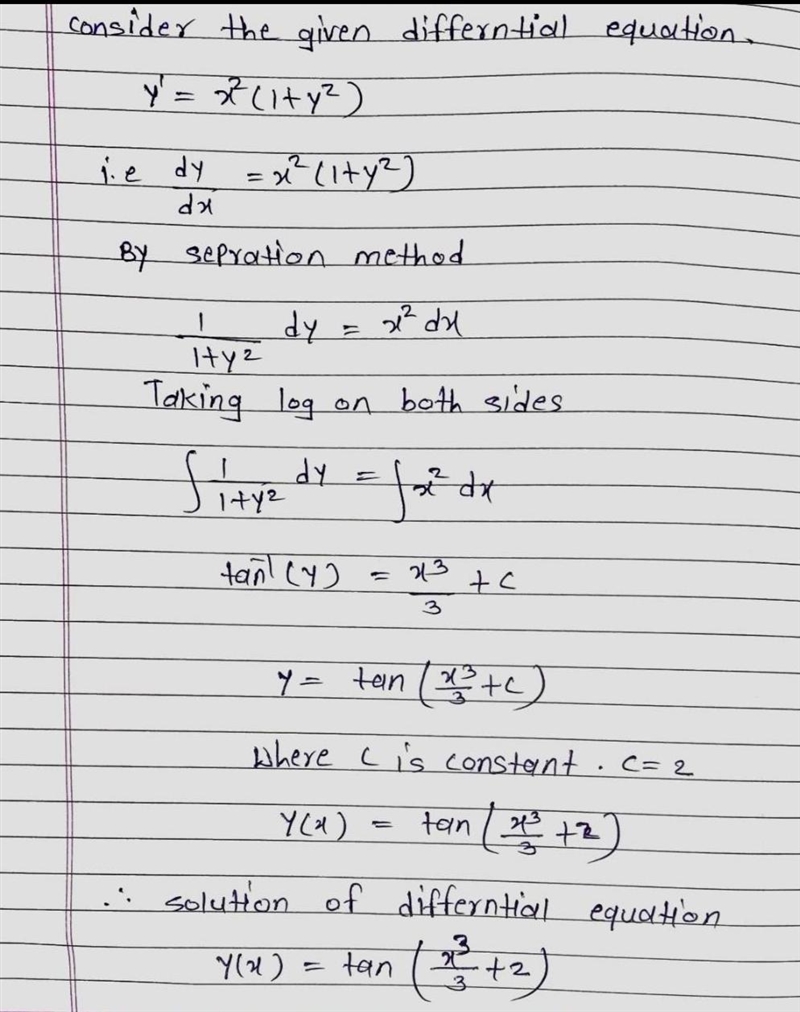 consider the given differntial equation.
y' = x²(1+y²)
i.e dy/dx = x²(1+y²)
By sepration method
1/(1+y²) dy = x² dx
Taking log on both sides
∫ 1/(1+y²) dy = ∫ x² dx
tan⁻¹(y) = x³/3 + c
y = tan(x³/3 + c)
Where c is constant. c = 2
Y(x) = tan(x³/3 + 2)
∴ solution of differntial equation
Y(x) = tan(x³/3 + 2)